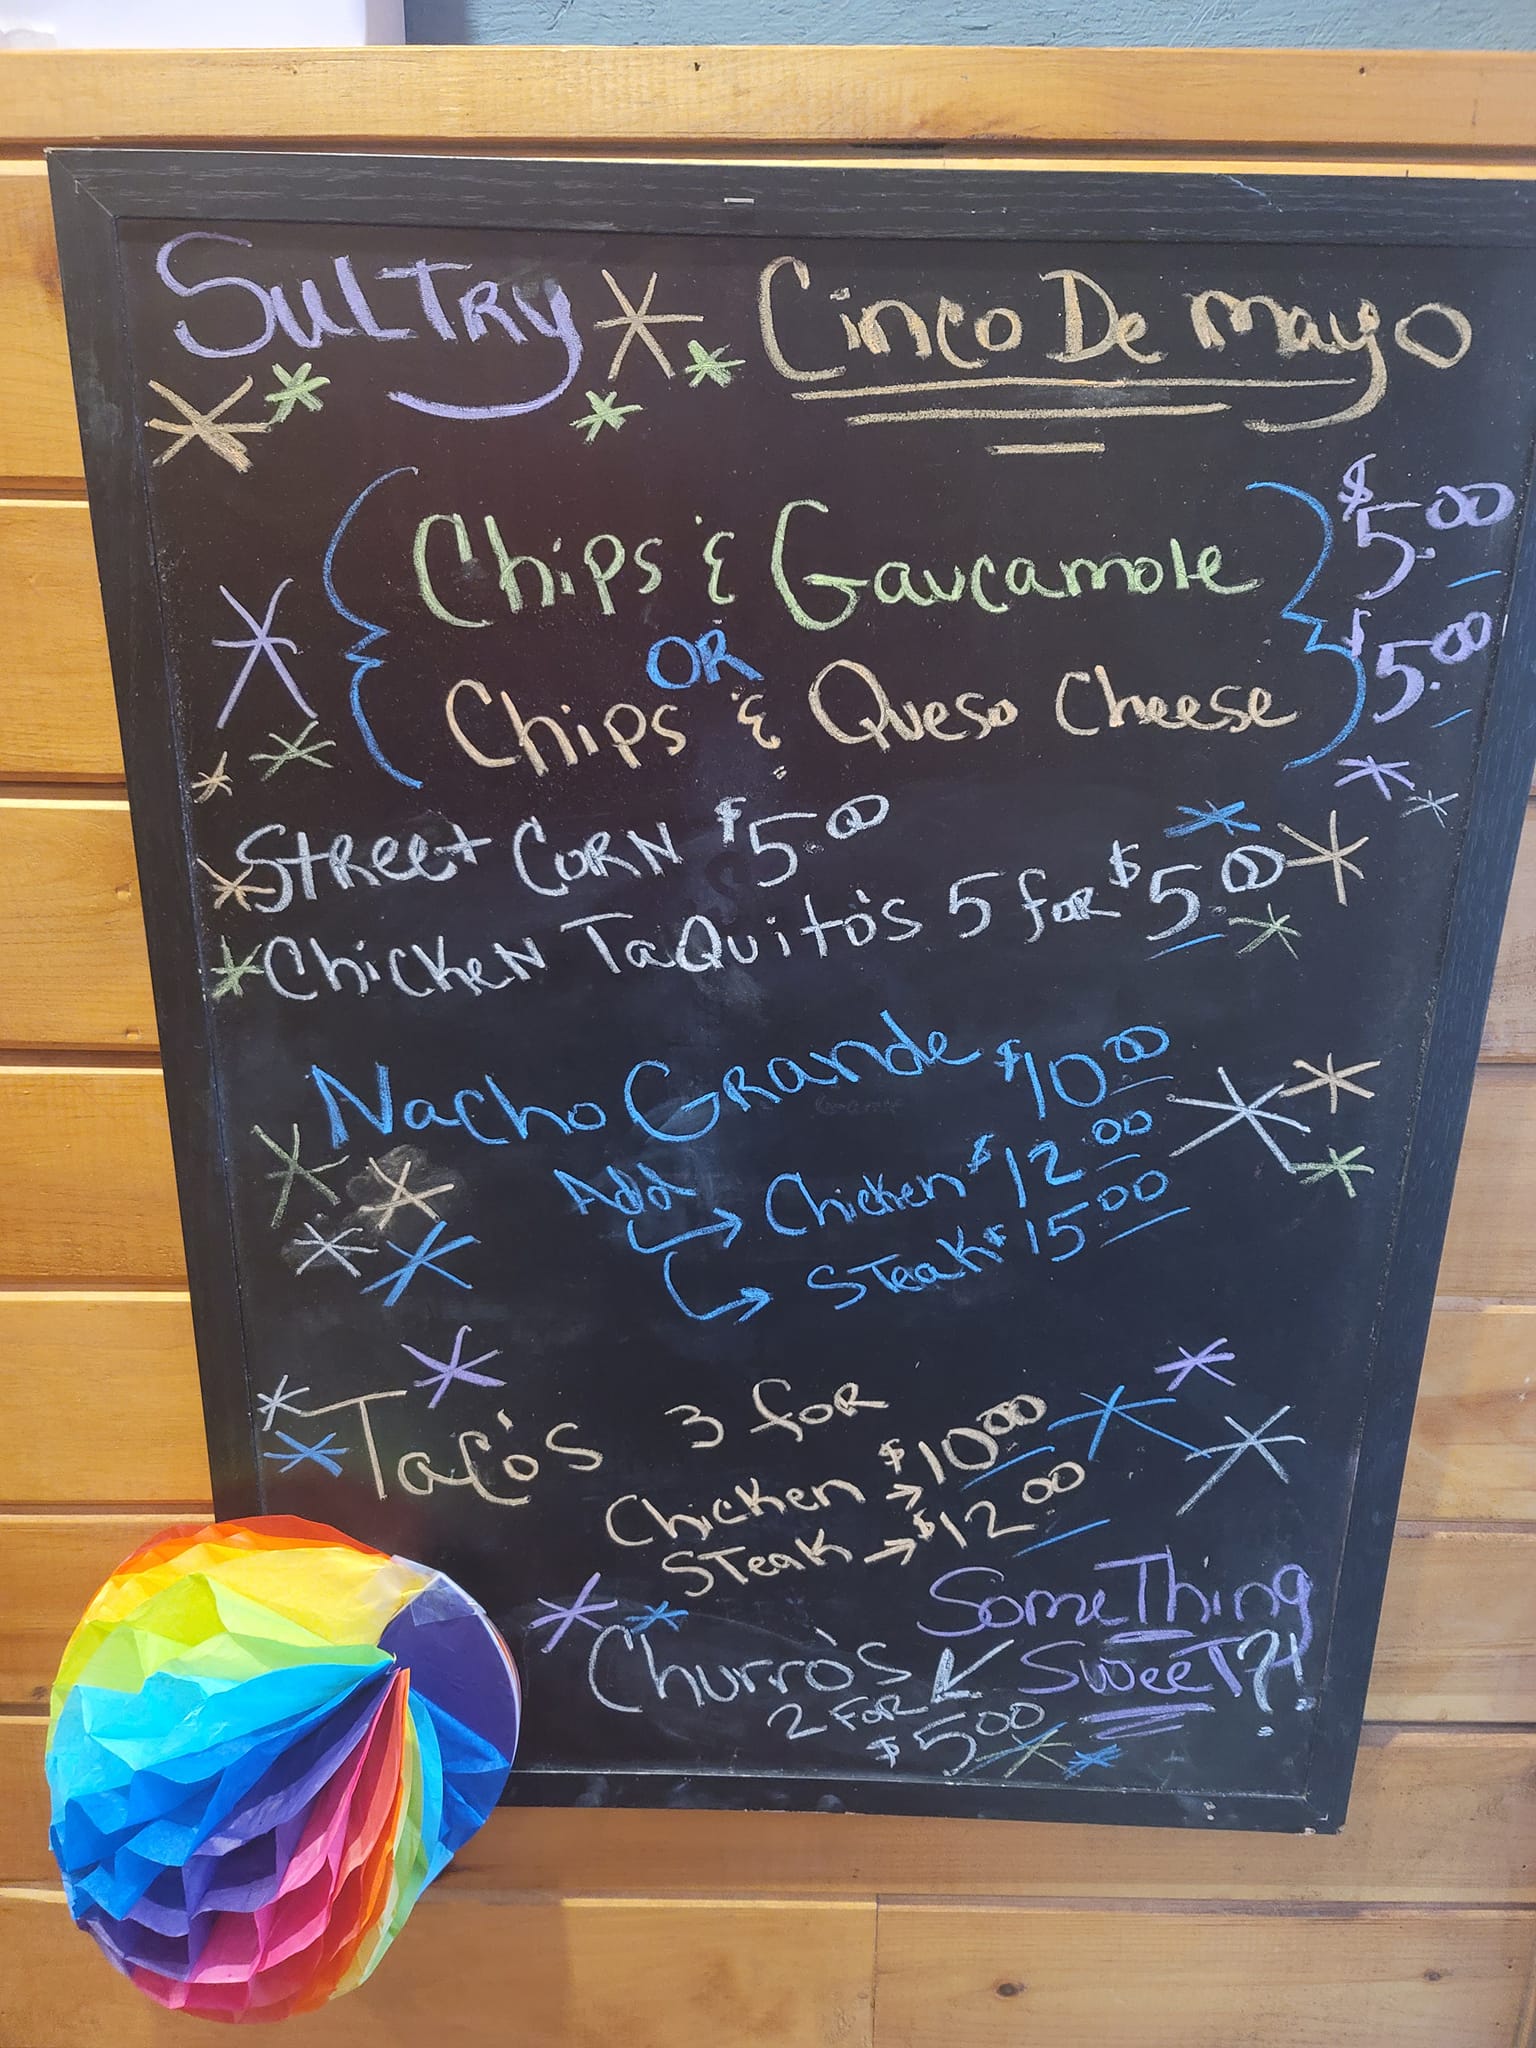 SULTRY Cinco De Mayo
Chips & Gaucamole $5.00
OR
Chips & Queso Cheese $5.00
Street Corn $5.00
Chicken TaQuito's 5 for $5.00
Nacho Grande $10.00
Add → Chicken $12.00
→ Steak $15.00
Taco's 3 for
Chicken → $10.00
Steak → $12.00
SomeThing
Sweet?!
Churro's
2 For
$5.00